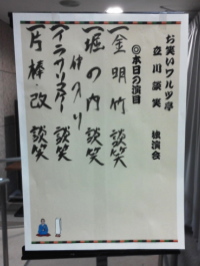 お笑いワルツ亭
立川談笑 独演会
◎本日の演目
一 金明竹 談笑
一 堀の内 談笑
仲入り
一 イラサリマケー 談笑
一 片棒・改 談笑